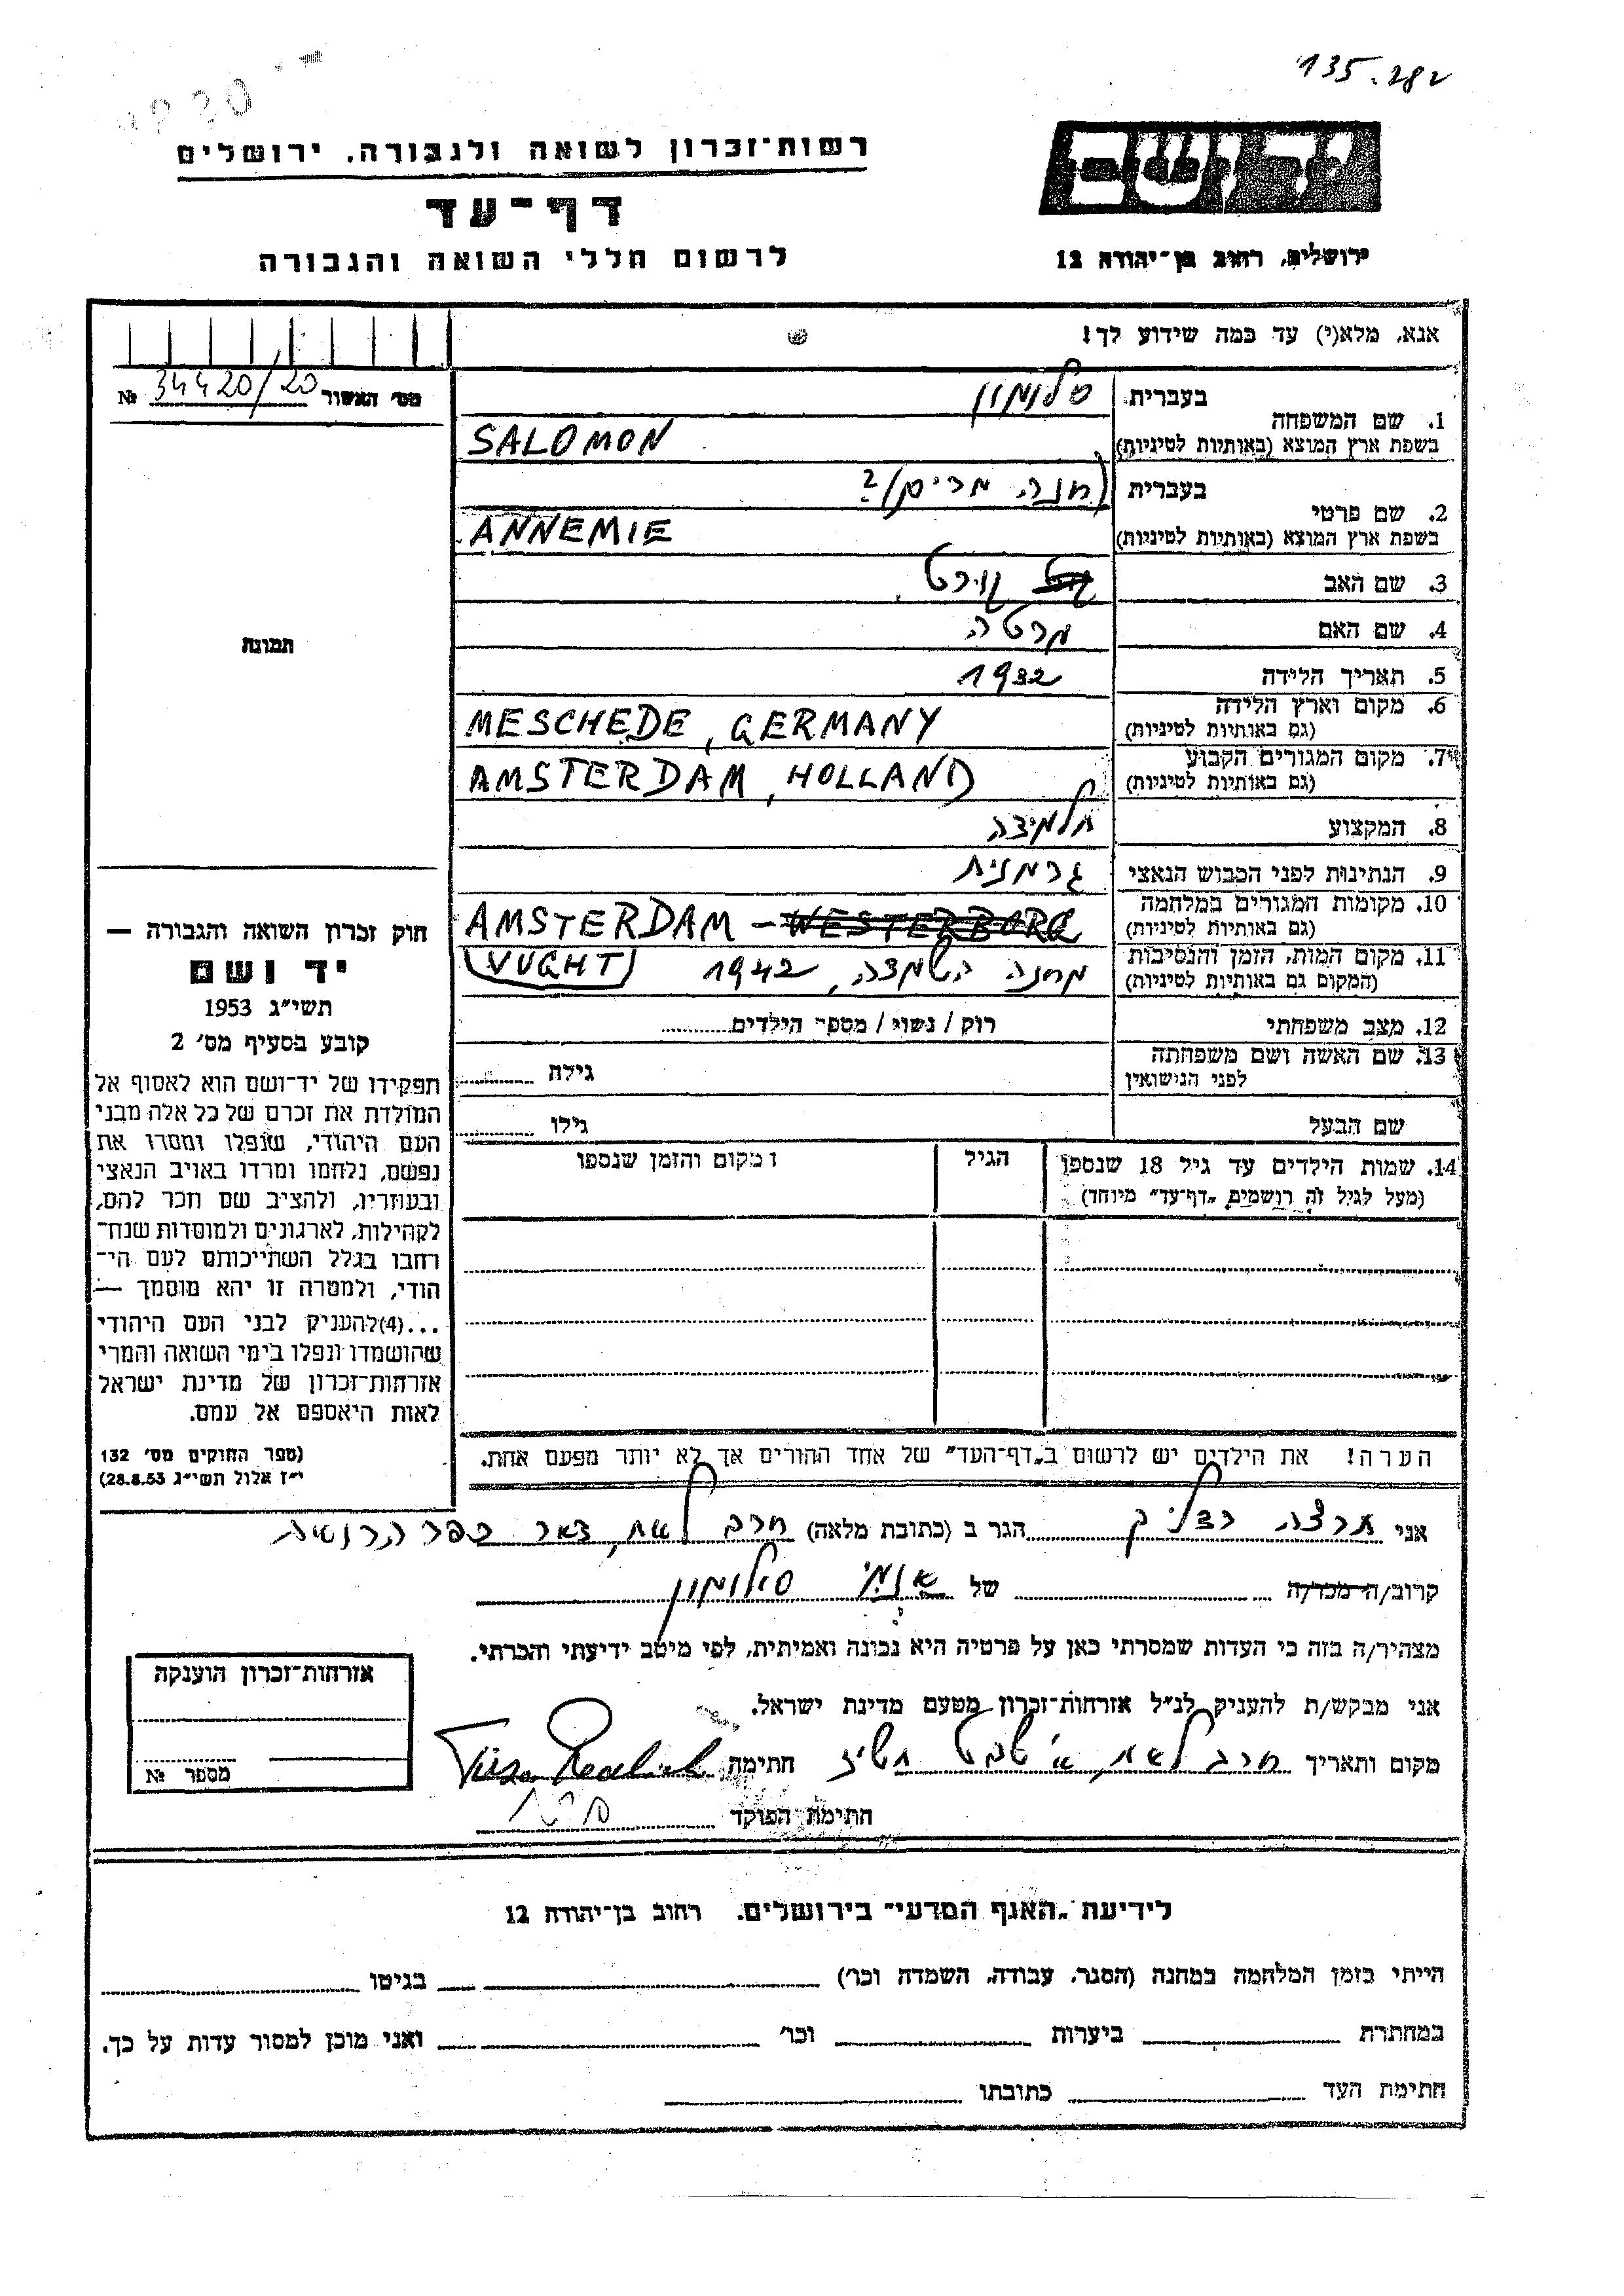 135.282
רשות־זכרון לשואה ולגבורה, ירושלים
דף־עד
לרשום חללי השואה והגבורה
יד ושם
ירושלים, רחוב בן־יהודה 12
אנא, מלא(י) עד כמה שידוע לך!
מס׳ האשור 34420/20 №
1. שם המשפחה בעברית סלומון
בשפת ארץ המוצא (באותיות לטיניות) SALOMON
2. שם פרטי בעברית (חנה מרים)?
בשפת ארץ המוצא (באותיות לטיניות) ANNEMIE
3. שם האב קורט
4. שם האם מרטה
5. תאריך הלידה 1932
6. מקום וארץ הלידה
(גם באותיות לטיניות) MESCHEDE, GERMANY
7. מקום המגורים הקבוע
(גם באותיות לטיניות) AMSTERDAM, HOLLAND
8. המקצוע תלמידה
9. הנתינות לפני הכבוש הנאצי גרמנית
10. מקומות המגורים במלחמה
(גם באותיות לטיניות) AMSTERDAM – WESTERBORG
11. מקום המות, הזמן והנסיבות
(המקום גם באותיות לטיניות) מחנה השמדה, 1942 (VUGHT)
12. מצב משפחתי רוק / נשוי / מספר הילדים
13. שם האשה ושם משפחתה
לפני הנישואין גילה
שם הבעל גילו
14. שמות הילדים עד גיל 18 שנספו
(מעל לגיל זה רושמים „דף־עד״ מיוחד)
הגיל
מקום והזמן שנספו
הערה! את הילדים יש לרשום ב„דף־העד״ של אחד ההורים אך לא יותר מפעם אחת.
תמונה
חוק זכרון השואה והגבורה —
יד ושם
תשי״ג 1953
קובע בסעיף מס׳ 2
תפקידו של יד־ושם הוא לאסוף אל
המולדת את זכרם של כל אלה מבני
העם היהודי, שנפלו ומסרו את
נפשם, נלחמו ומרדו באויב הנאצי
ובעוזריו, ולהציב שם וזכר להם,
לקהילות, לארגונים ולמוסדות שנח־
רחבו בגלל השתייכותם לעם הי־
הודי, ולמטרה זו יהא מוסמך —
...(4)להעניק לבני העם היהודי
שהושמדו ונפלו בימי השואה והמרי
אזרחות־זכרון של מדינת ישראל
לאות היאספם אל עמם.
(ספר החוקים מס׳ 132
י״ז אלול תשי״ג 28.8.53)
אני תרצה רדליך הגר ב (כתובת מלאה) חרב לאת, דאר כפר הרואה
קרוב/ה מכר/ה של אנמי סולומון
מצהיר/ה בזה כי העדות שמסרתי כאן על פרטיה היא נכונה ואמיתית, לפי מיטב ידיעתי והכרתי.
אני מבקש/ת להעניק לנ״ל אזרחות־זכרון מטעם מדינת ישראל.
מקום ותאריך חרב לאת, א׳ שבט תשי״ז חתימה
חתימת הפוקד
אזרחות־זכרון הוענקה
מספר №
לידיעת „האגף המדעי״ בירושלים. רחוב בן־יהודה 12
הייתי בזמן המלחמה במחנה (הסגר, עבודה, השמדה וכר׳) בגיטו
במחתרת ביערות וכר׳ ואני מוכן למסור עדות על כך.
חתימת העד כתובתו